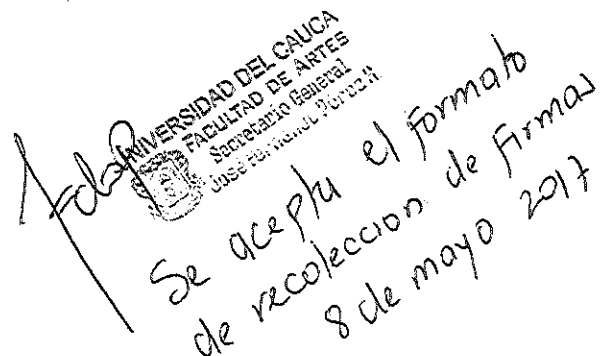 UNIVERSIDAD DEL CAUCA
FACULTAD DE ARTES
Secretario General
José Fernando Pérez
Se acepta el formato
de recoleccion de Firmas
8 de mayo 2017